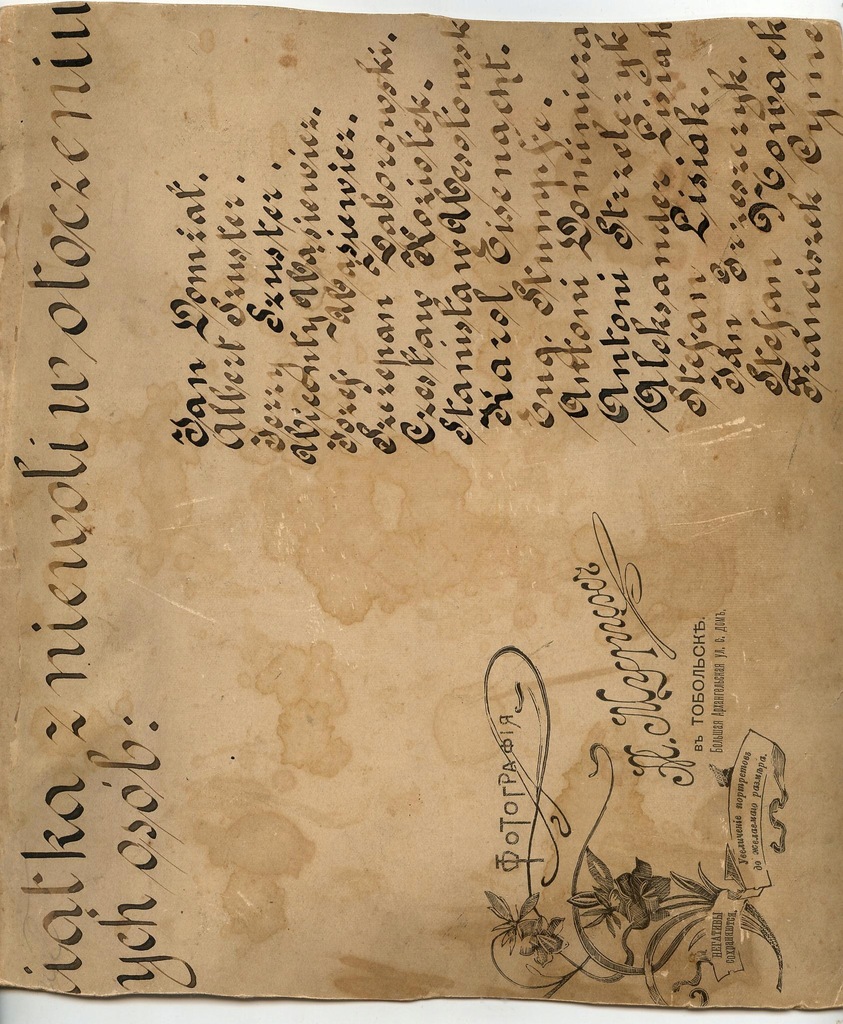 iątka z niewoli w otoczeniu
ych osób:
Jan Domżał.
Albert Szuster.
Jerzy Szuster.
Wincenty Wąsiewicz.
Józef Wąsiewicz.
Szczepan Zaborowski.
Czesław Koziołek.
Stanisław Wesołowsk
Karol Eisenacht.
Eug. Stumpfe.
Antoni Dominicza
Antoni Strzelczyk
Aleksander Lisiak
Stefan Lisiak.
Jan Grzeszczyk.
Stefan Nowack
Franciszek Cyme
ФОТОГРАФІЯ
ВЪ ТОБОЛЬСКѢ.
Большая Архангельская ул. с. домъ.
Увеличеніе портретовъ
до желаемаго размѣра.
НЕГАТИВЫ
СОХРАНЯЮТСЯ.